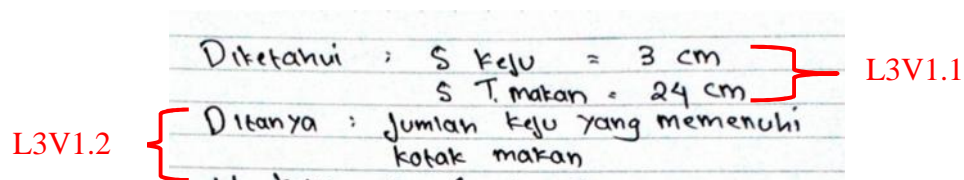 Diketahui : S keju = 3 cm
S T. makan = 24 cm
L3V1.1
Ditanya : Jumlah keju yang memenuhi
kotak makan
L3V1.2